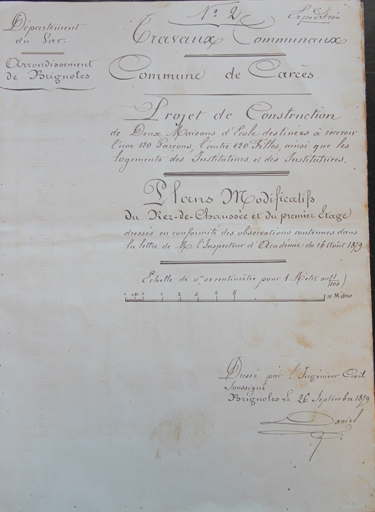 Département
du Var.
Arrondissement
de Brignoles
N.º 2
Expédition
Travaux Communaux
Commune de Carcès
Projet de Construction
de Deux Maisons d'Ecole destinées à recevoir
l'une 120 Garçons, l'autre 120 Filles, ainsi que les
logements des Instituteurs et des Institutrices.
Plans Modificatifs
du Rez-de-Chaussée et du premier Etage
dressés en conformité des observations contenues dans
la lettre de Mr l'Inspecteur d'Académie du 16 Août 1879
Echelle de 0,m01 centimètre pour 1 Mètre ou (1/100)
10 Mètres
Dressé par l'Ingénieur Civil
Soussigné
Brignoles le 26 Septembre 1879
Daniel